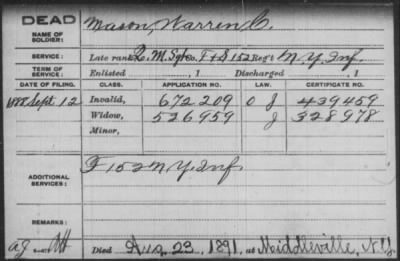 DEAD
NAME OF SOLDIER: Mason, Warren C.
SERVICE: Late rank Q. M. Sgt Co. F & S 152 Reg't N.Y. Inf.
TERM OF SERVICE: Enlisted , 1 Discharged , 1
DATE OF FILING. CLASS. APPLICATION NO. LAW. CERTIFICATE NO.
1888 Sept. 12 Invalid, 672209 O J 439459
Widow, 526959 J 328978
Minor,
ADDITIONAL SERVICES: F 152 N Y. Inf.
REMARKS:
Died Aug 23, 1891, at Middleville, N.Y.